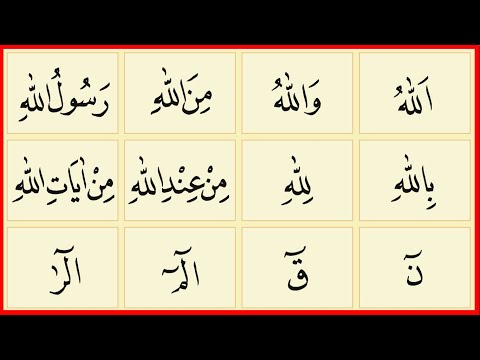 اَللّٰهُ وَاللّٰهُ مِنَ اللّٰهِ رَسُولُ اللّٰهِ
بِاللّٰهِ لِلّٰهِ مِنْ عِنْدِ اللّٰهِ مِنْ اٰيَاتِ اللّٰهِ
نٓ قٓ الٓمٓ الٓرٰ